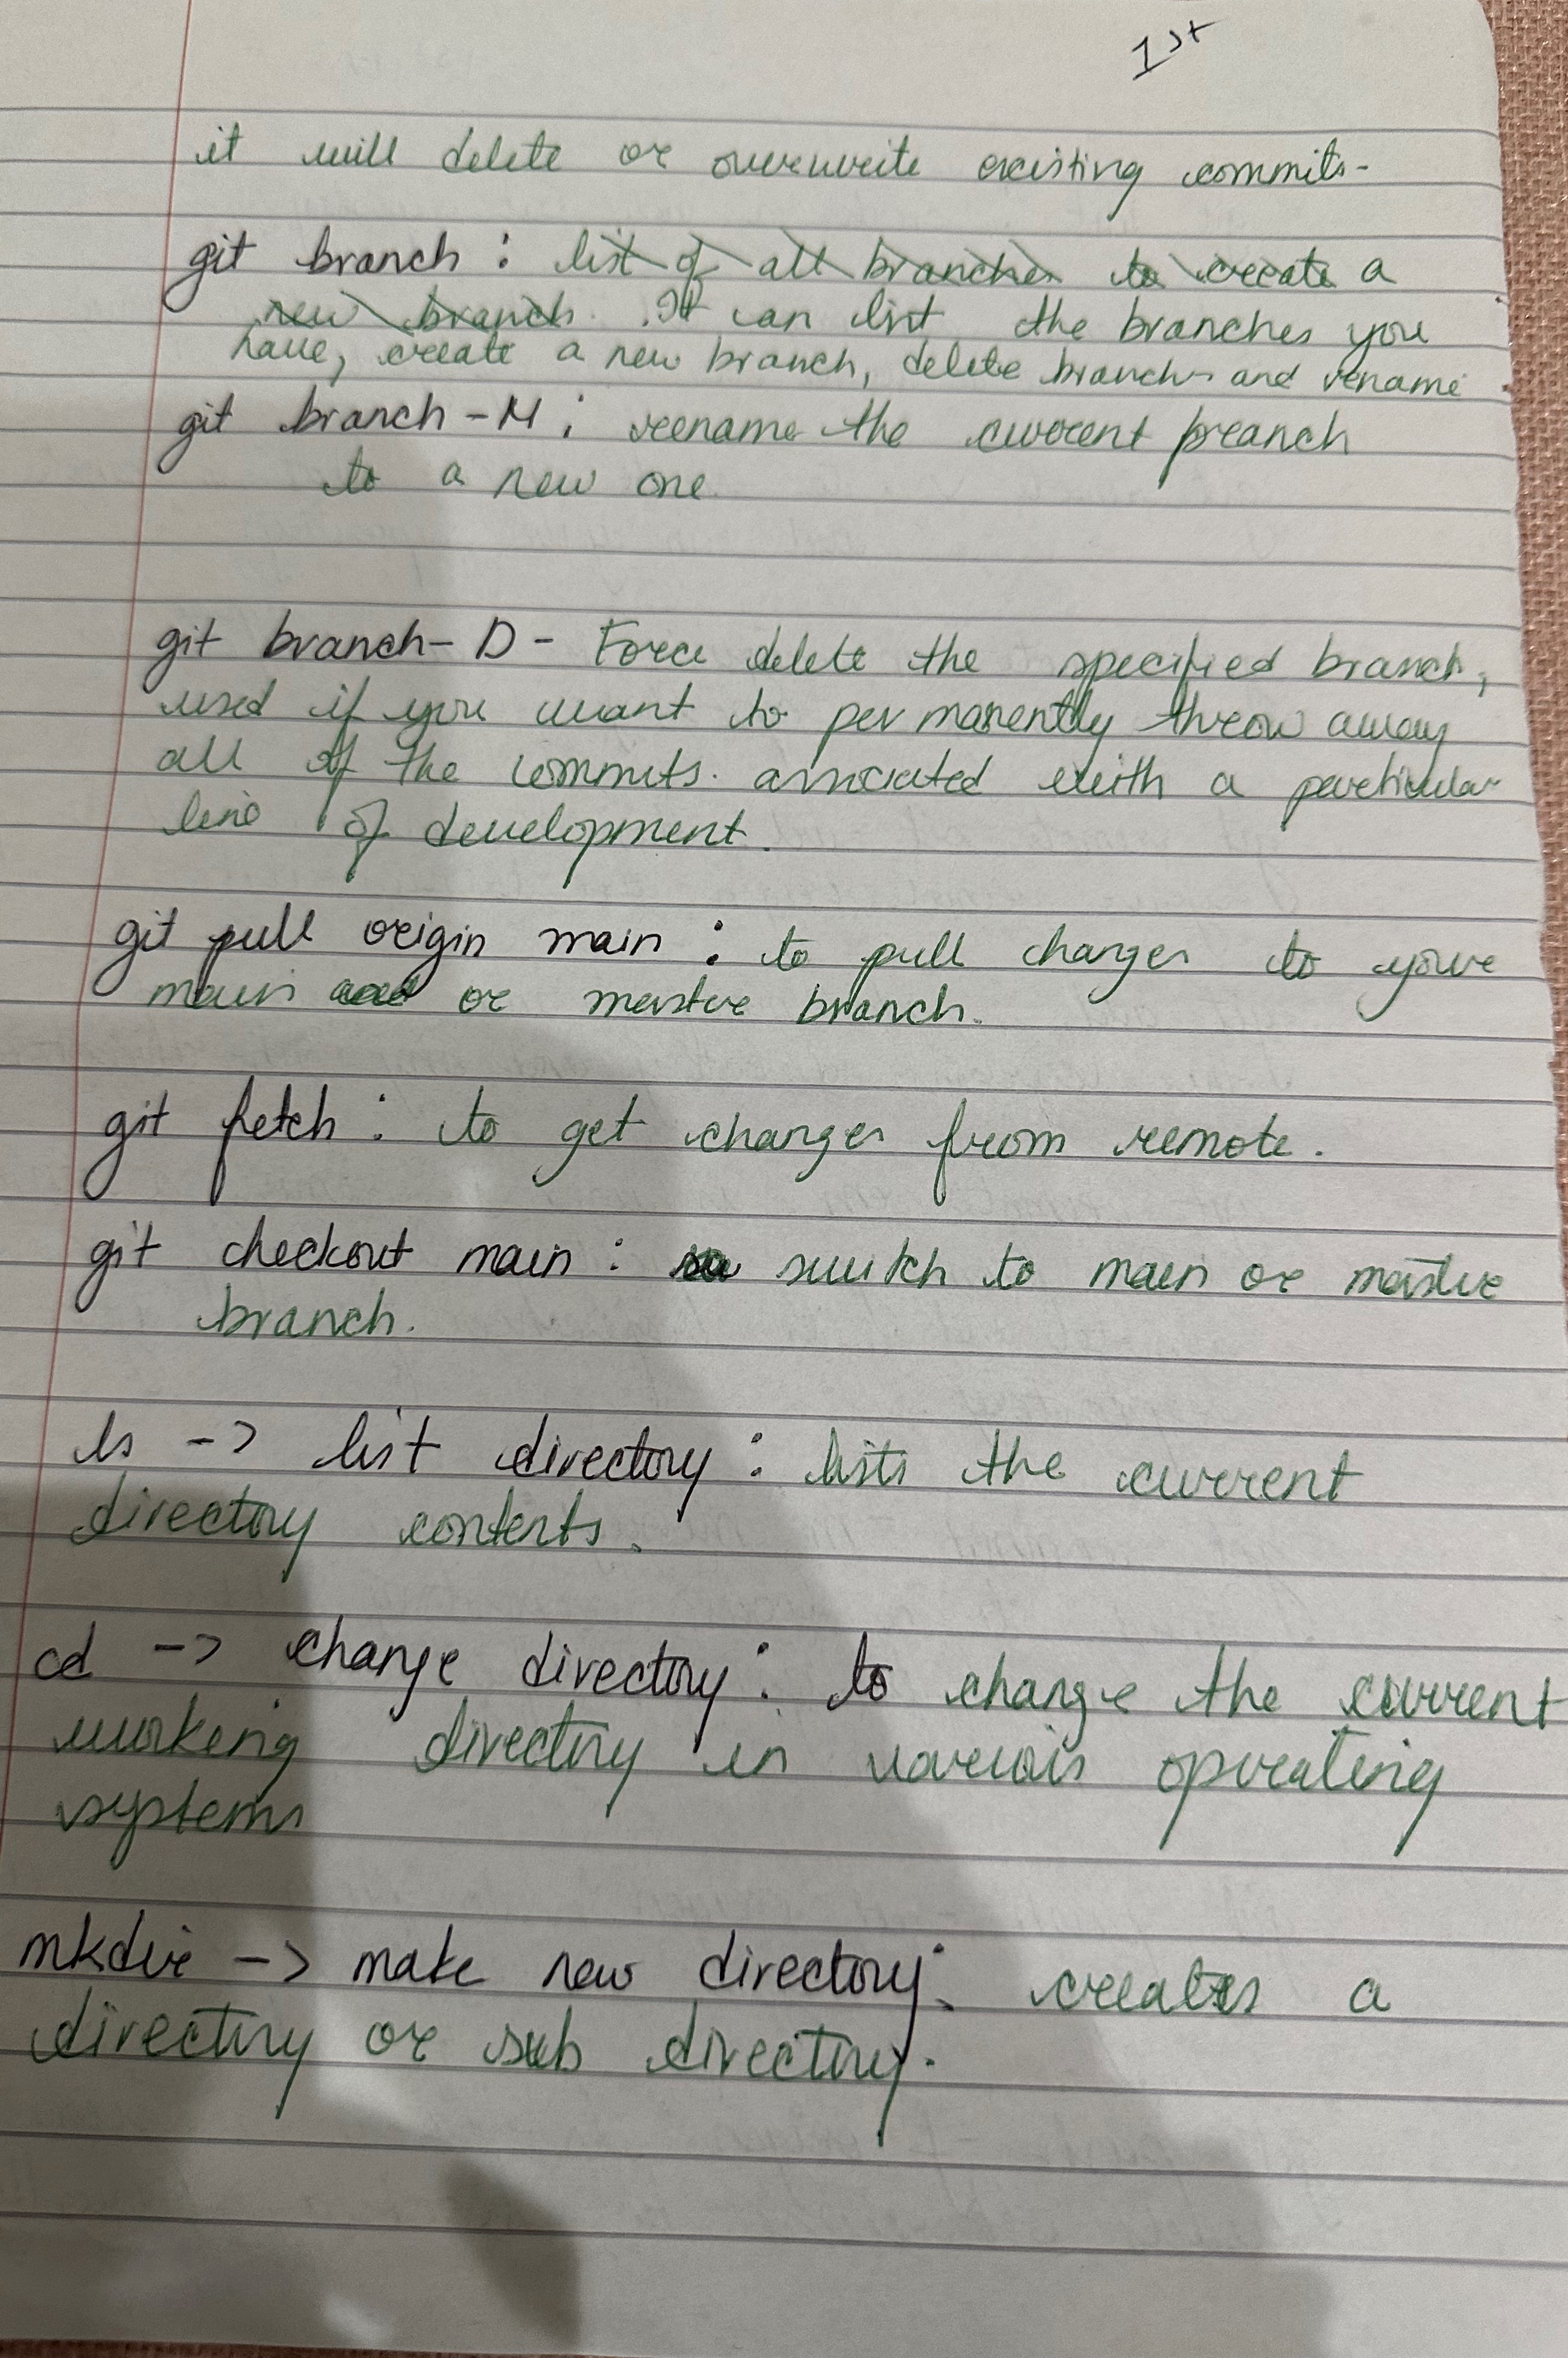 1st
it will delete or overwrite existing commits-
git branch : list of all branches to create a
new branch. It can list the branches you
have, create a new branch, delete branch and rename
git branch -M : rename the current branch
to a new one
git branch- D - Force delete the specified branch,
used if you want to permanently throw away
all of the commits. associated with a particular
line of development.
git pull origin main : to pull changes to your
main or master branch.
git fetch : to get changes from remote.
git checkout main : switch to main or master
branch.
ls -> list directory : lists the current
directory contents.
cd -> change directory : to change the current
working directory in various operating
systems
mkdir -> make new directory : creates a
directory or sub directory.